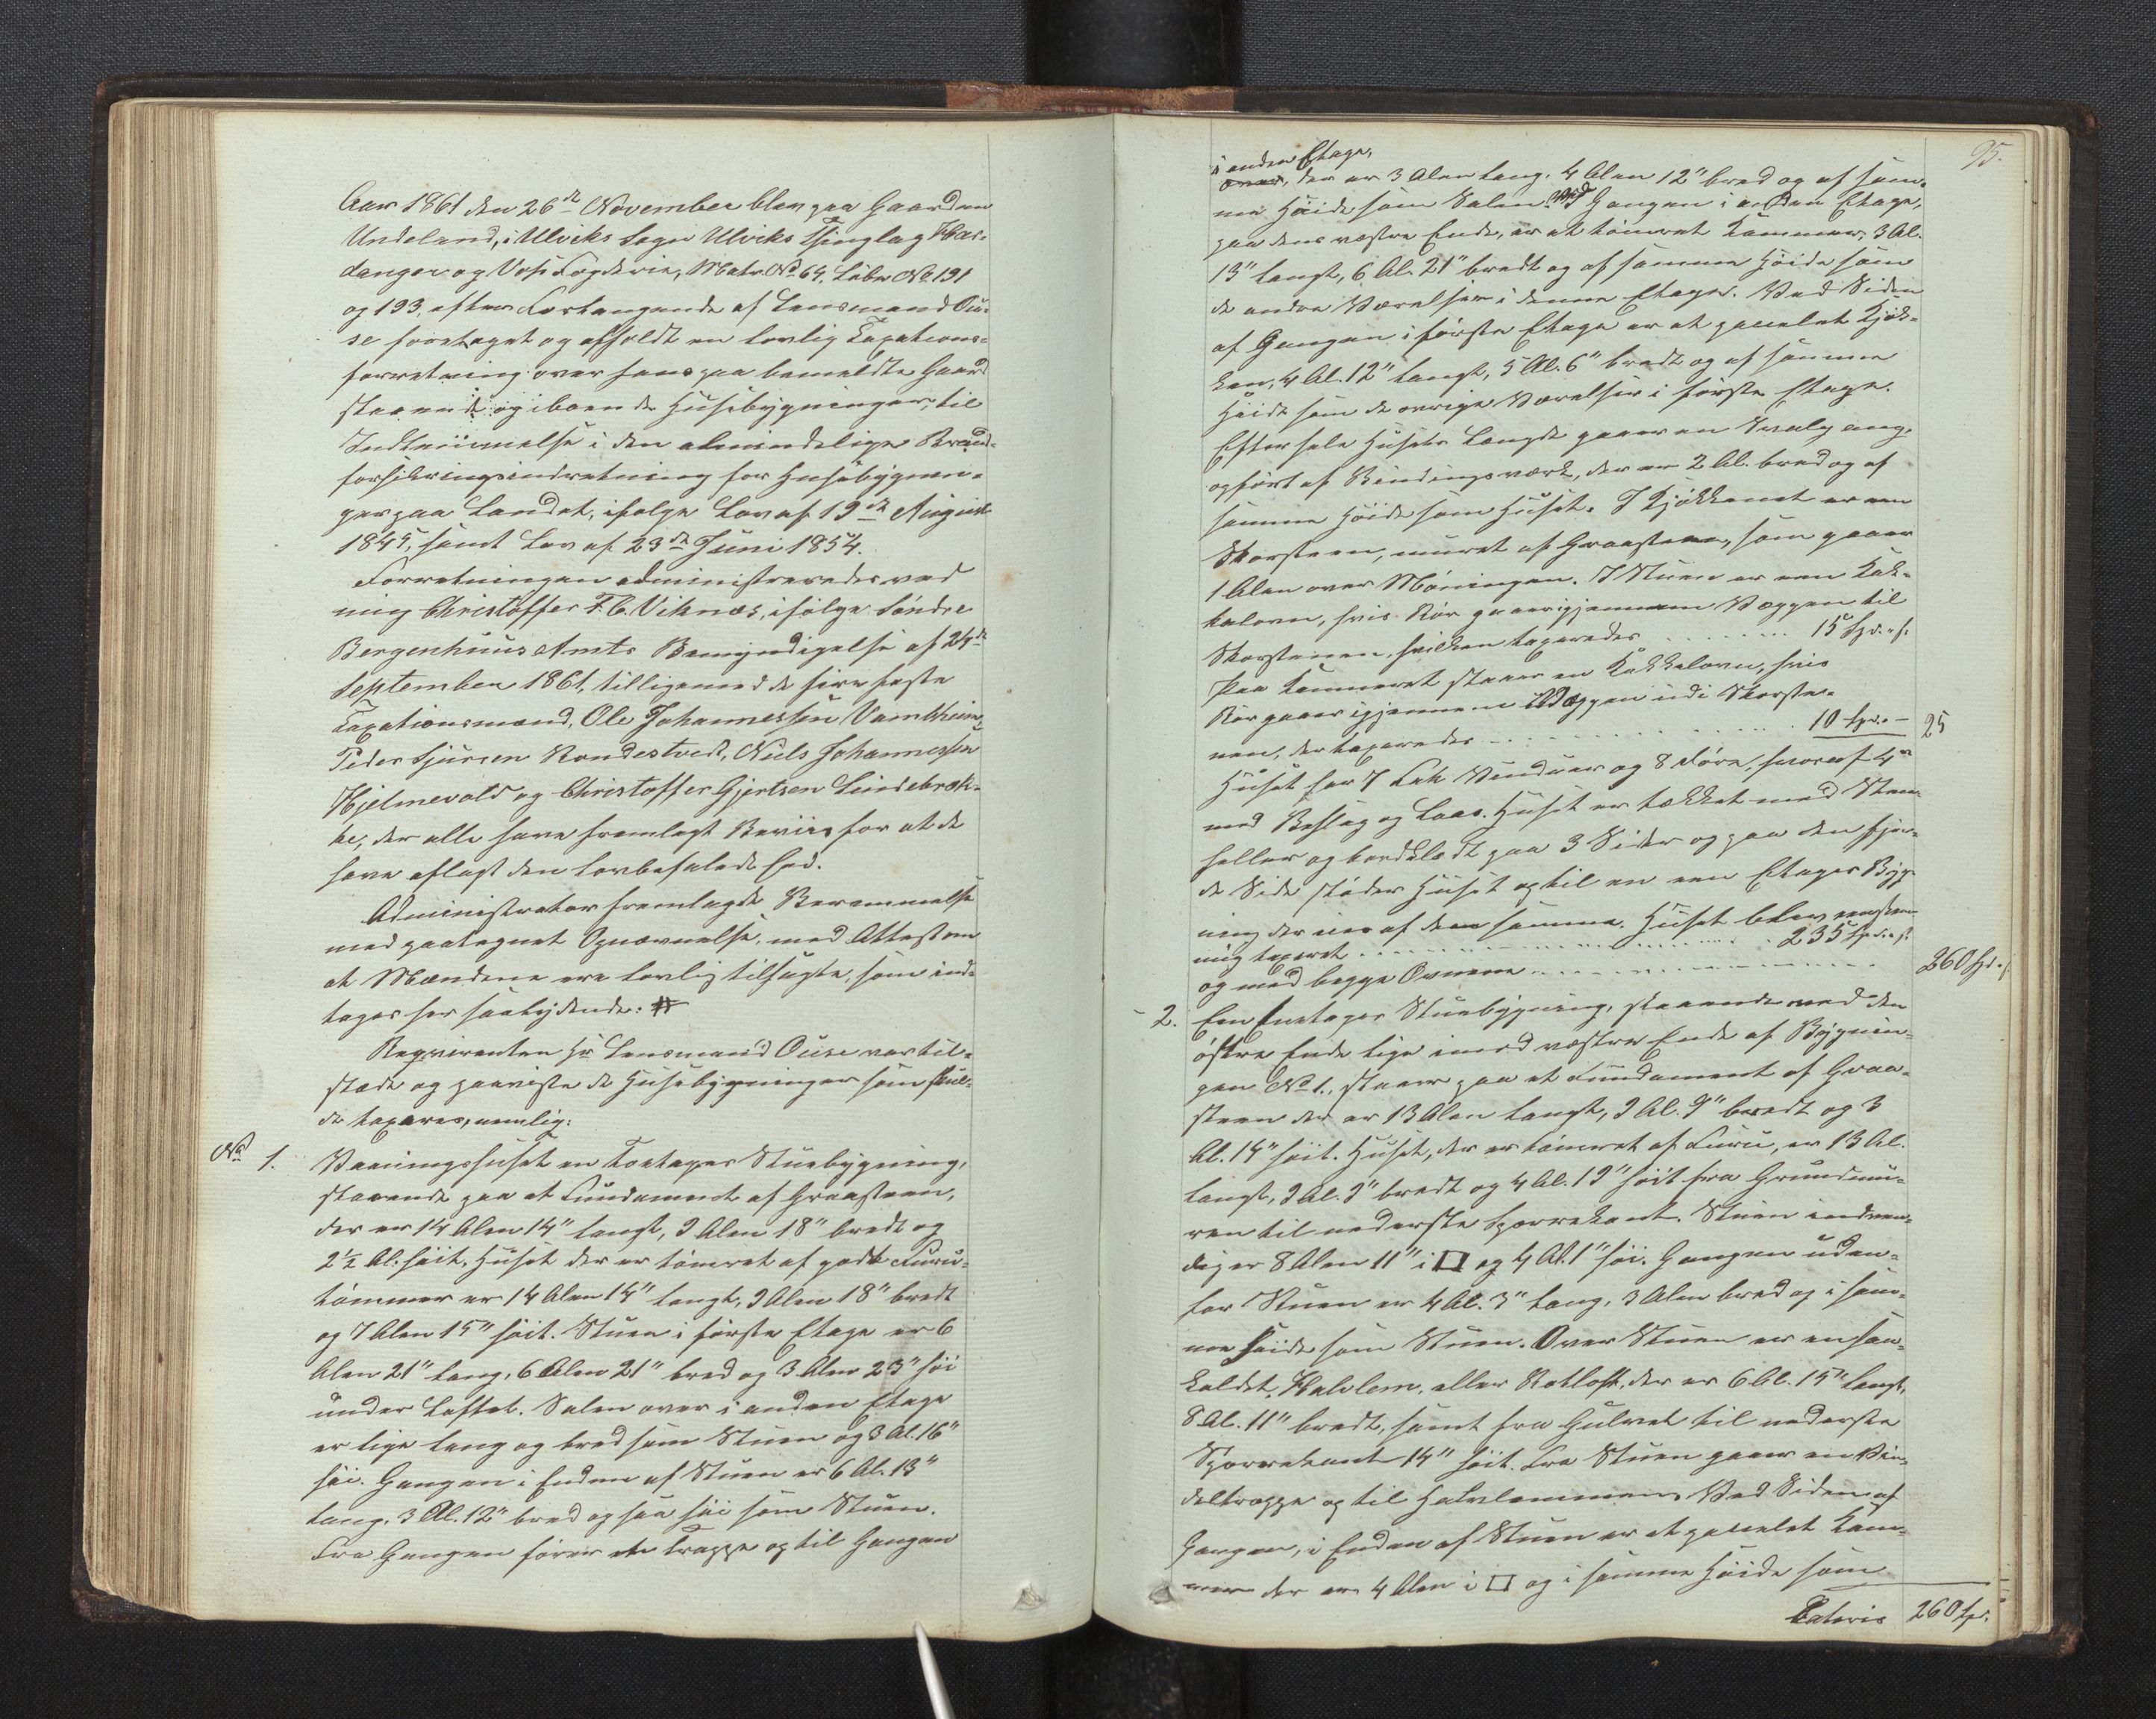 Aar 1861 den 26de November blev paa Gaarden
Undeland, i Ulviks Sogn Ulviks Thinglag Har-
danger og Voss Fogderie, Matr. No 64, Løbe No 191
og 193, efter Forlangende af Lensmand Ou-
se foretaget og afholdt en lovlig Taxations-
forretning over hans paa bemeldte Gaard
staaende og iboende Husebygninger, til
Indtegnelse i den almindelige Brand-
forsikringsindretning for Husebygnin-
ger paa Landet, ifølge Lov af 19de August
1845, samt Lov af 23de Juni 1854.
Forretningen administreredes ved
mig Christoffer F. C. Viknæs, ifølge Søndre
Bergenhuus Amts Bemyndigelse af 24de
September 1861, tilligemed de fire faste
Taxationsmænd, Ole Johannessen Vambheim,
Peder Sjursen Rondestvedt, Niels Johannessen
Hjelmevold og Christoffer Gjertsen Lindebræk-
ke, der alle have fremlagt Beviis for at de
have aflagt den lovbefalede Eed.
Administrator fremlagde Berammelse
med paategnet Opnævnelse, med Attest om
at Mændene ere lovlig tilsagte, som ind-
tages her saalydende: #
Reqvirenten Hr Lensmand Ouse var til-
stede og paaviste de Husebygninger som skul-
de taxeres, nemlig:
No 1. Vaaningshuset en toetages Stuebygning,
staaende paa et Fundament af Graasteen,
der er 14 Alen 14" langt, 9 Alen 18" bredt og
2 1/2 Al. høit. Huset der er tømret af godt Furu-
tømmer er 14 Alen 14" langt, 9 Alen 18" bredt
og 7 Alen 15" høit. Stuen i første Etage er 6
Alen 21" lang, 6 Alen 21" bred og 3 Alen 23" høi
under Loftet. Salen over i anden Etage
er lige lang og bred som Stuen og 3 Al. 16"
høi. Gangen i Enden af Stuen er 6 Al. 13"
lang, 3 Al. 12" bred og saa høi som Stuen.
Fra Gangen fører en Trappe op til Gangen
95.
i anden Etage,
over, der er 3 Alen lang, 4 Alen 12" bred og af sam-
me Høide som Salen. Ved Gangen i anden Etage,
paa dens vestre Ende, er et tømret Kammer, 3 Al.
13" langt, 6 Al. 21" bredt og af samme Høide som
de andre Værelser i denne Etage. Ved Siden
af Gangen i første Etage er et panelet Kjøk-
ken, 4 Al. 12" langt, 5 Al. 6" bredt og af samme
Høide som de øvrige Værelser i første Etage.
Efter hele Husets Længde gaaer en Svalgang,
opført af Bindingsværk, der er 2 Al. bred og af
samme Høide som Huset. I Kjøkkenet er een
Skorsteen, muret af Graasteen, som gaaer
1 Alen over Møningen. I Stuen er een Kak-
kelovn, hvis Rør gaaer igjennem Væggen til
Skorstenen, hvilken taxeredes . . . . . . . 15 Spd. " s.
Paa Kammeret staaer en Kakkelovn, hvis
Rør gaaer igjennem Væggen udi Skorste-
nen, der taxeredes . . . . . . . . . . 10 Spd. - 25
Huset har 7 Fak Vinduer og 8 Døre, hvoraf 4re
med Beslag og Laas. Huset er tækket med Steen-
heller og bordklædt paa 3 Sider og paa den fjer-
de Side støder Huset op til en een Etages Byg-
ning der er af den samme. Huset blev eenstem-
mig taxeret . . . . . . . . . . . . 235 Spd. " s.
og med begge Ovnene . . . . . . . . . . 260 Spd. " s.
2. Een Eenetages Stuebygning, staaende med den
østre Ende lige imod vestre Ende af Bygnin-
gen No 1., staaer paa et Fundament af Graa-
steen der er 13 Alen langt, 9 Al. 9" bredt og 3
Al. 14" høit. Huset, der er tømret af Furu, er 13 Al.
langt, 9 Al. 9" bredt og 4 Al. 19" høit fra Grundmu-
ren til nederste Sperrekant. Stuen indven-
dig er 8 Alen 11" i □ og 4 Al. 1" høi. Gangen uden-
for Stuen er 4 Al. 3" lang, 3 Alen bred og i sam-
me Høide som Stuen. Over Stuen er en saa-
kaldet Halvlem, eller Rotloft, der er 6 Al. 15" langt,
8 Al. 11" bredt, samt fra Gulvet til nederste
Sperrekant 14" høit. Fra Stuen gaaer en Vin-
deltrappe op til Halvlemmen. Ved Siden af
Gangen, i Enden af Stuen er et panelet Kam-
mer der er 4 Alen i □ og i samme Høide som
Lateris 260 Spd.